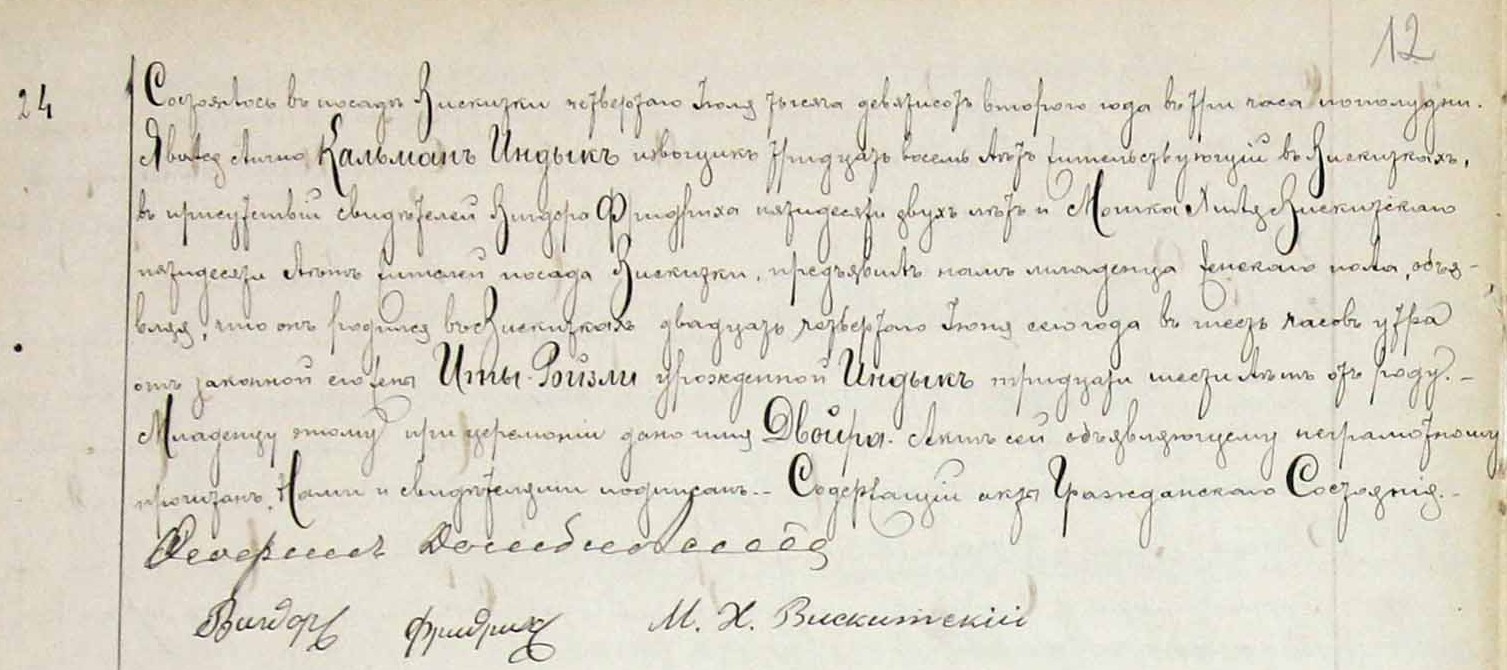 12
24
Состоялось въ посадѣ Вискитки четвертаго Іюля тысяча девятисотъ второго года въ три часа пополудни.
Явился лично Кальманъ Индыкъ извощикъ тридцать восемь лѣтъ жительствующій въ Вискиткахъ,
въ присутствіи свидѣтелей Вигдора Фридриха пятидесяти двухъ лѣтъ и Мошка Хиля Вискитскаго
пятидесяти лѣтъ жителей посада Вискитки, предъявилъ намъ младенца женскаго пола, объя-
вляя, что онъ родился въ Вискиткахъ двадцать четвертаго Іюня сего года въ шесть часовъ утра
отъ законной его жены Иты-Ройзли урожденной Индыкъ тридцати шести лѣтъ отъ роду. -
Младенцу этому при церемоніи дано имя Двойра. Актъ сей объявляющему неграмотному
прочитанъ, Нами и свидѣтелями подписанъ. - Содержащій акты Гражданскаго Состоянія. -
Вигдоръ Фридрихъ М. Х. Вискитскій